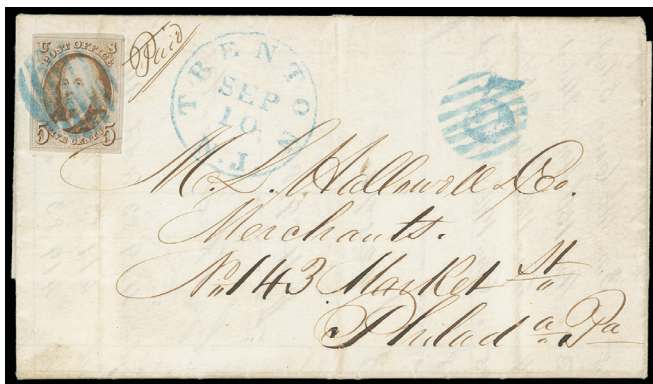 U S
POST OFFICE
5 FIVE CENTS 5
Paid
TRENTON
SEP
10
N.J.
5
M. L. Hallowell & Co.
Merchants.
No. 143 Market St
Philada. Pa